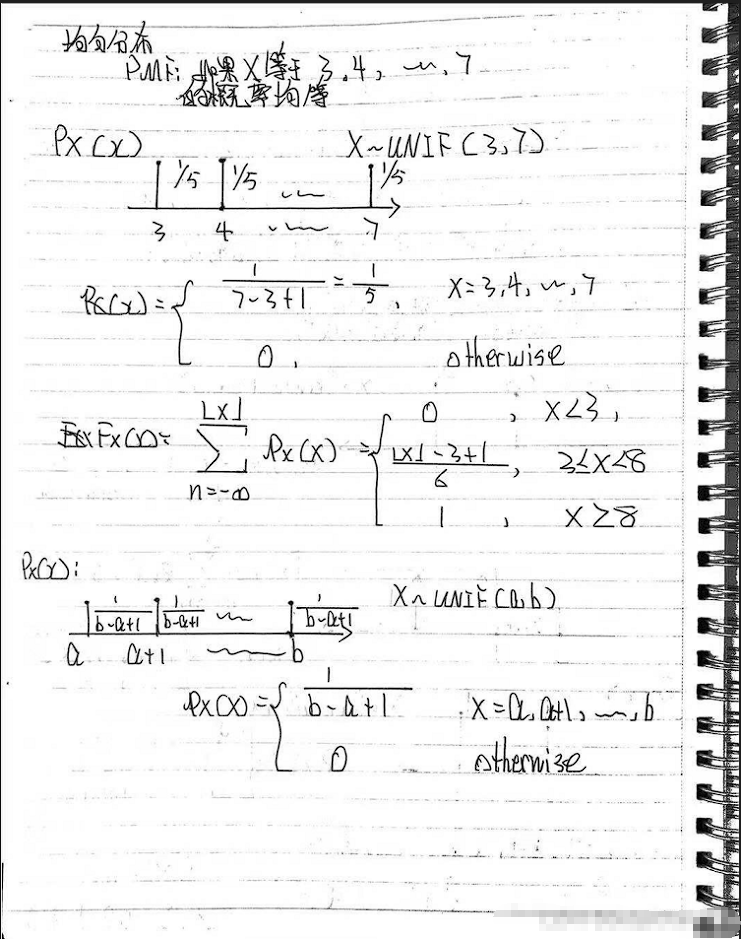 均匀分布
PMF: 如果X等于 3, 4, …, 7
的概率均等
Px(x)
X~UNIF(3,7)
1/5 1/5 … 1/5
3 4 … 7
Px(x) = { 1/(7-3+1) = 1/5, X=3,4,…,7
0, otherwise
Fx(x) = ∑_{n=-∞}^{⌊x⌋} Px(x) = { 0, X<3,
(⌊x⌋-3+1)/6, 3≤X<8
1, X≥8
Px(x):
1/(b-a+1) 1/(b-a+1) … 1/(b-a+1)
X~UNIF(a,b)
a a+1 … b
Px(x) = { 1/(b-a+1) X=a, a+1, …, b
0 otherwise